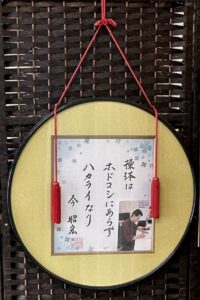 操体は
ホドコシにあらず
ハカライなり
今 昭宏